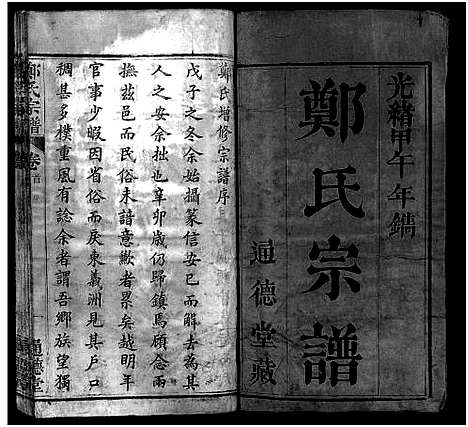 光緒甲午年鐫
鄭氏宗譜
通德堂藏
鄭氏增修宗譜序
戊子之冬余始攝篆信安已而解去為其
人之安余拙也辛卯歲仍歸鎮馬顧念兩
撫茲邑而民俗未諳意歉者累矣越明年
官事少暇因省俗而戾東義洲見其戶口
稠甚多樸重風有諗余者謂吾鄉族望獨
鄭氏宗譜
卷首
通德堂